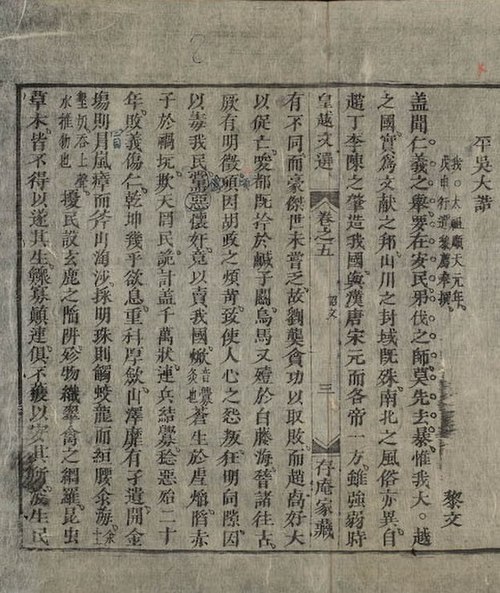 平吳大誥
我。太祖順天元年。
戊申行遣黎廌奉撰。
黎文
蓋聞仁義之舉要在安民弔伐之師莫先去暴惟我大。越
之國實爲文献之邦山川之封域既殊南北之風俗亦異自
趙丁李陳之肇造我國與漢唐宋元而各帝一方雖強弱時
皇越文選 卷之五 詔文 三 存庵家藏
有不同而豪傑世未嘗乏故劉龑貪功以取敗而趙卨好大
以促亡唆都既拾於鹹子關烏馬又殪於白藤海嵇諸往古
厥有明徵頃因胡政之煩苛致使人心之怨叛狂明伺隙因
以毒我民黨惡懷奸竟以賣我國焮音釁炙也蒼生於虐焰陷赤
子於禍坑欺天罔民詭計蓋千萬狀連兵結釁稔惡殆二十
年敗義傷仁乾坤幾乎欲息重科厚斂山澤靡有孑遺開金
塲則冒嵐瘴而斧山淘沙採明珠則觸蛟龍而緪腰汆海汆土
墾切吞上聲水推物也擾民設玄鹿之陷阱殄物織翠禽之網羅昆虫
草木皆不得以遂其生鰥寡顛連俱不獲以安其所浚生民